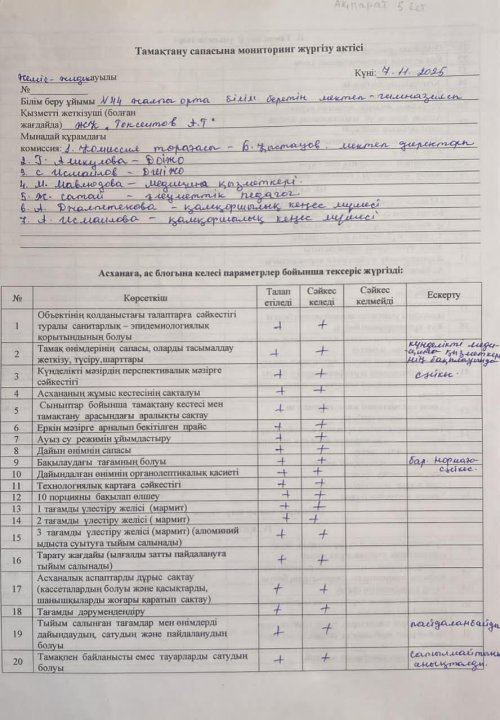 Ақпарат 5 бет
Тамақтану сапасына мониторинг жүргізу актісі
Жеміс-жидек ауылы Күні: 7.11.2025
№
Білім беру ұйымы №44 жалпы орта білім беретін мектеп-гимназиясы
Қызметті жеткізуші (болған
жағдайда) ЖК, Токсеитов А.Т"
Мынадай құрамдағы
комиссия: 1. Комиссия төрағасы - Б. мектеп директоры
2. Г. Аликулова - ДОІЖО
3. С Исмайлов - ДШІЖО
4. М. Мавлюдова - медицина қызметкері
5. Ж. сатай - әлеуметтік педагог
6. А. Джалтенова - қамқоршылық кеңес мүшесі
7. А. Исмаилова - қамқоршылық кеңес мүшесі
Асханаға, ас блогына келесі параметрлер бойынша тексеріс жүргізді:
№ Көрсеткіш Талап етіледі Сәйкес келеді Сәйкес келмейді Ескерту
1 Объектінің қолданыстағы талаптарға сәйкестігі
туралы санитарлық – эпидемиологиялық + +
қорытындының болуы
2 Тамақ өнімдерінің сапасы, оларды тасымалдау + + күнделікті меди-
жеткізу, түсіру,шарттары цина қызметкері-
нің бақылауында
3 Күнделікті мәзірдің перспективалық мәзірге + + сәйкес.
сәйкестігі
4 Асхананың жұмыс кестесінің сақталуы + +
5 Сыныптар бойынша тамақтану кестесі мен + +
тамақтану арасындағы аралықты сақтау
6 Еркін мәзірге арналып бекітілген прайс + +
7 Ауыз су режимін ұйымдастыру + +
8 Дайын өнімнің сапасы + +
9 Бақылаудағы тағамның болуы + + бар нормаға
10 Дайындалған өнімнің органолептикалық қасиеті + + сәйкес.
11 Технологиялық картаға сәйкестігі + +
12 10 порцияны бақылап өлшеу + +
13 1 тағамды үлестіру желісі (мармит) + +
14 2 тағамды үлестіру желісі ( мармит) + +
15 3 тағамды үлестіру желісі (мармит) (алюминий + +
ыдыста суытуға тыйым салынады)
16 Тарату жағдайы (ылғалды затты пайдалануға + +
тыйым салынады)
17 Асханалық аспаптарды дұрыс сақтау
(кассеталардың болуы және қасықтарды, + +
шанышқыларды жоғары қаратып сақтау)
18 Тағамды дәрумендендіру + +
19 Тыйым салынған тағамдар мен өнімдерді + + пайдаланбайды
дайындаудың, сатудың және пайдаланудың
болуы
20 Тамақпен байланысты емес тауарларды сатудың + + сатылмайтыны
болуы анықталды.